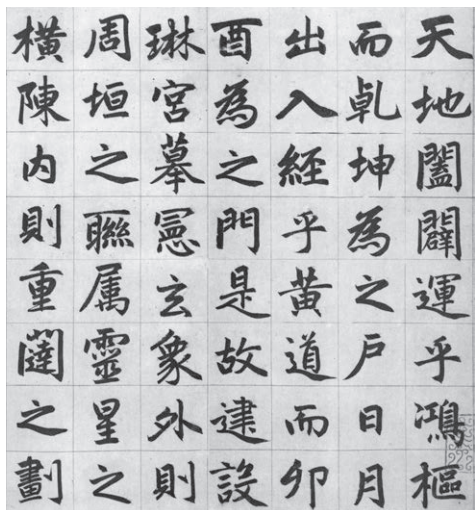 天地闔闢運乎鴻樞
而乹坤為之戶日月
出入經乎黃道而卯
酉為之門是故建設
琳宮摹憲玄象外則
周垣之聯属靈星之
橫陳内則重闥之劃